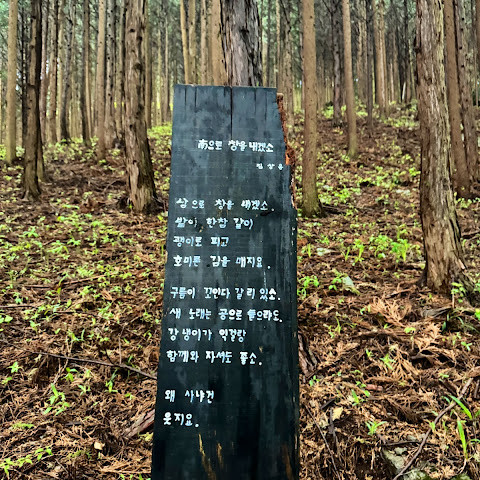 南으로 창을 내겠소
김상용
남으로 창을 내겠소.
밭이 한참 갈이
괭이로 파고
호미론 김을 매지요.
구름이 꼬인다 갈 리 있소.
새 노래는 공으로 들으랴오.
강냉이가 익걸랑
함께와 자셔도 좋소.
왜 사냐건
웃지요.